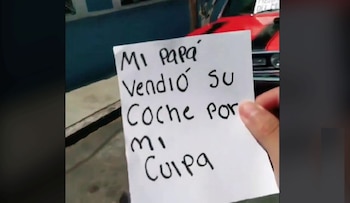 Mi PAPÁ
Vendió Su
Coche Por
Mi
Culpa